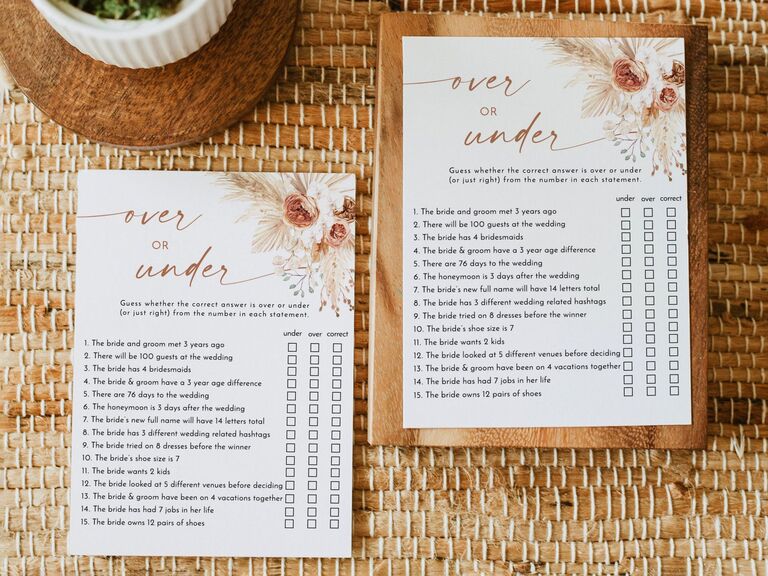 over
OR
under
Guess whether the correct answer is over or under
(or just right) from the number in each statement.
under over correct
1. The bride and groom met 3 years ago
2. There will be 100 guests at the wedding
3. The bride has 4 bridesmaids
4. The bride & groom have a 3 year age difference
5. There are 76 days to the wedding
6. The honeymoon is 3 days after the wedding
7. The bride's new full name will have 14 letters total
8. The bride has 3 different wedding related hashtags
9. The bride tried on 8 dresses before the winner
10. The bride's shoe size is 7
11. The bride wants 2 kids
12. The bride looked at 5 different venues before deciding
13. The bride & groom have been on 4 vacations together
14. The bride has had 7 jobs in her life
15. The bride owns 12 pairs of shoes
over
OR
under
Guess whether the correct answer is over or under
(or just right) from the number in each statement.
under over correct
1. The bride and groom met 3 years ago
2. There will be 100 guests at the wedding
3. The bride has 4 bridesmaids
4. The bride & groom have a 3 year age difference
5. There are 76 days to the wedding
6. The honeymoon is 3 days after the wedding
7. The bride's new full name will have 14 letters total
8. The bride has 3 different wedding related hashtags
9. The bride tried on 8 dresses before the winner
10. The bride's shoe size is 7
11. The bride wants 2 kids
12. The bride looked at 5 different venues before deciding
13. The bride & groom have been on 4 vacations together
14. The bride has had 7 jobs in her life
15. The bride owns 12 pairs of shoes